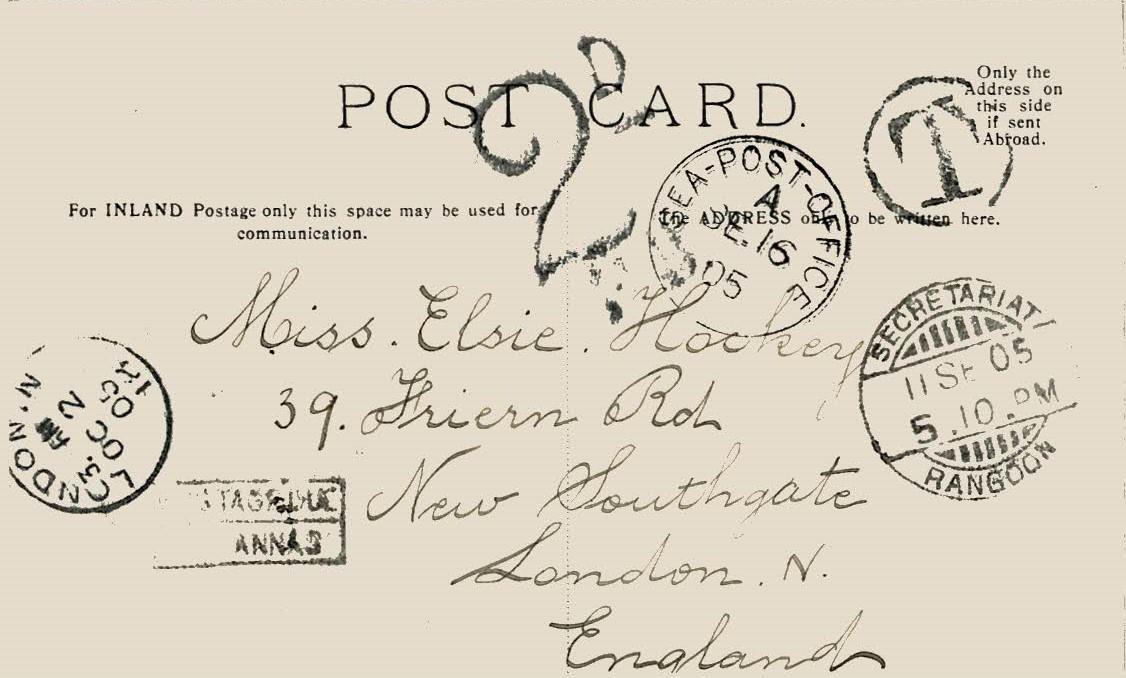 POST CARD.
Only the
Address on
this side
if sent
Abroad.
T
2d
SEA-POST-OFFICE
A
SE 16
05
For INLAND Postage only this space may be used for
communication.
The ADDRESS only to be written here.
SECRETARIAT
11 SE 05
5.10.PM
RANGOON
Miss. Elsie. Hockey
39. Friern Rd
New Southgate
London. N.
England
LONDON. N
3. AM
OC 2
05
12
ANNAS